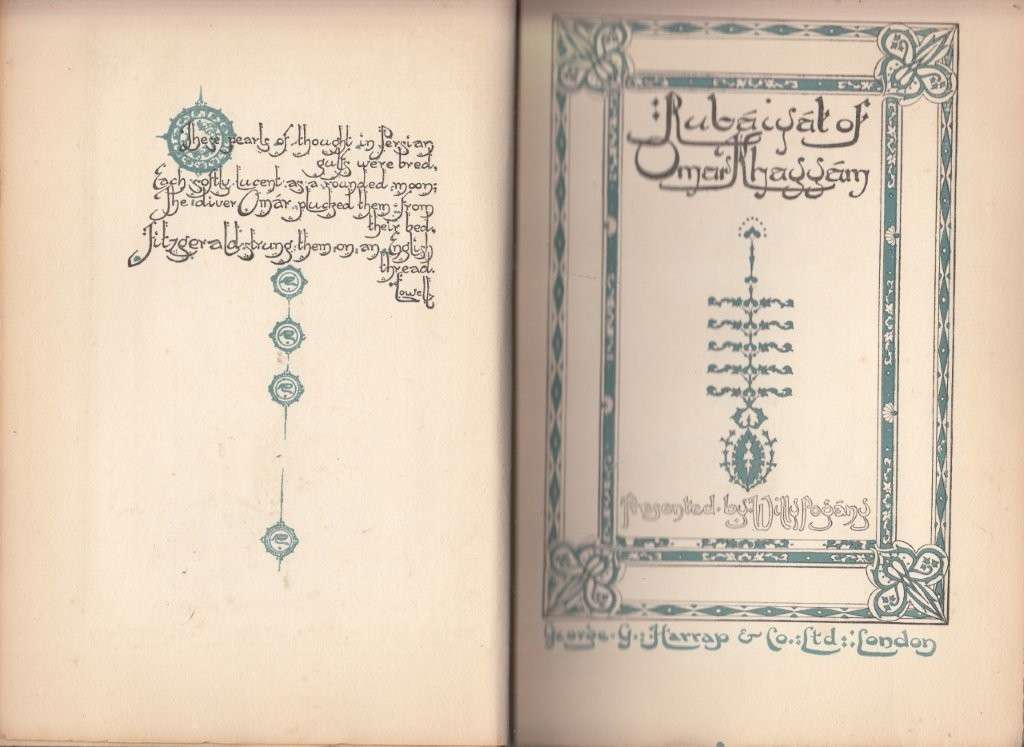 These pearls of thought in Persian
gulfs were bred,
Each softly lucent as a rounded moon;
The diver Omár plucked them from
their bed,
Fitzgerald strung them on an English
thread.
Lowell
Rubáiyát of
Omar Khayyám
Presented by Willy Pogány
George G. Harrap & Co. Ltd. London